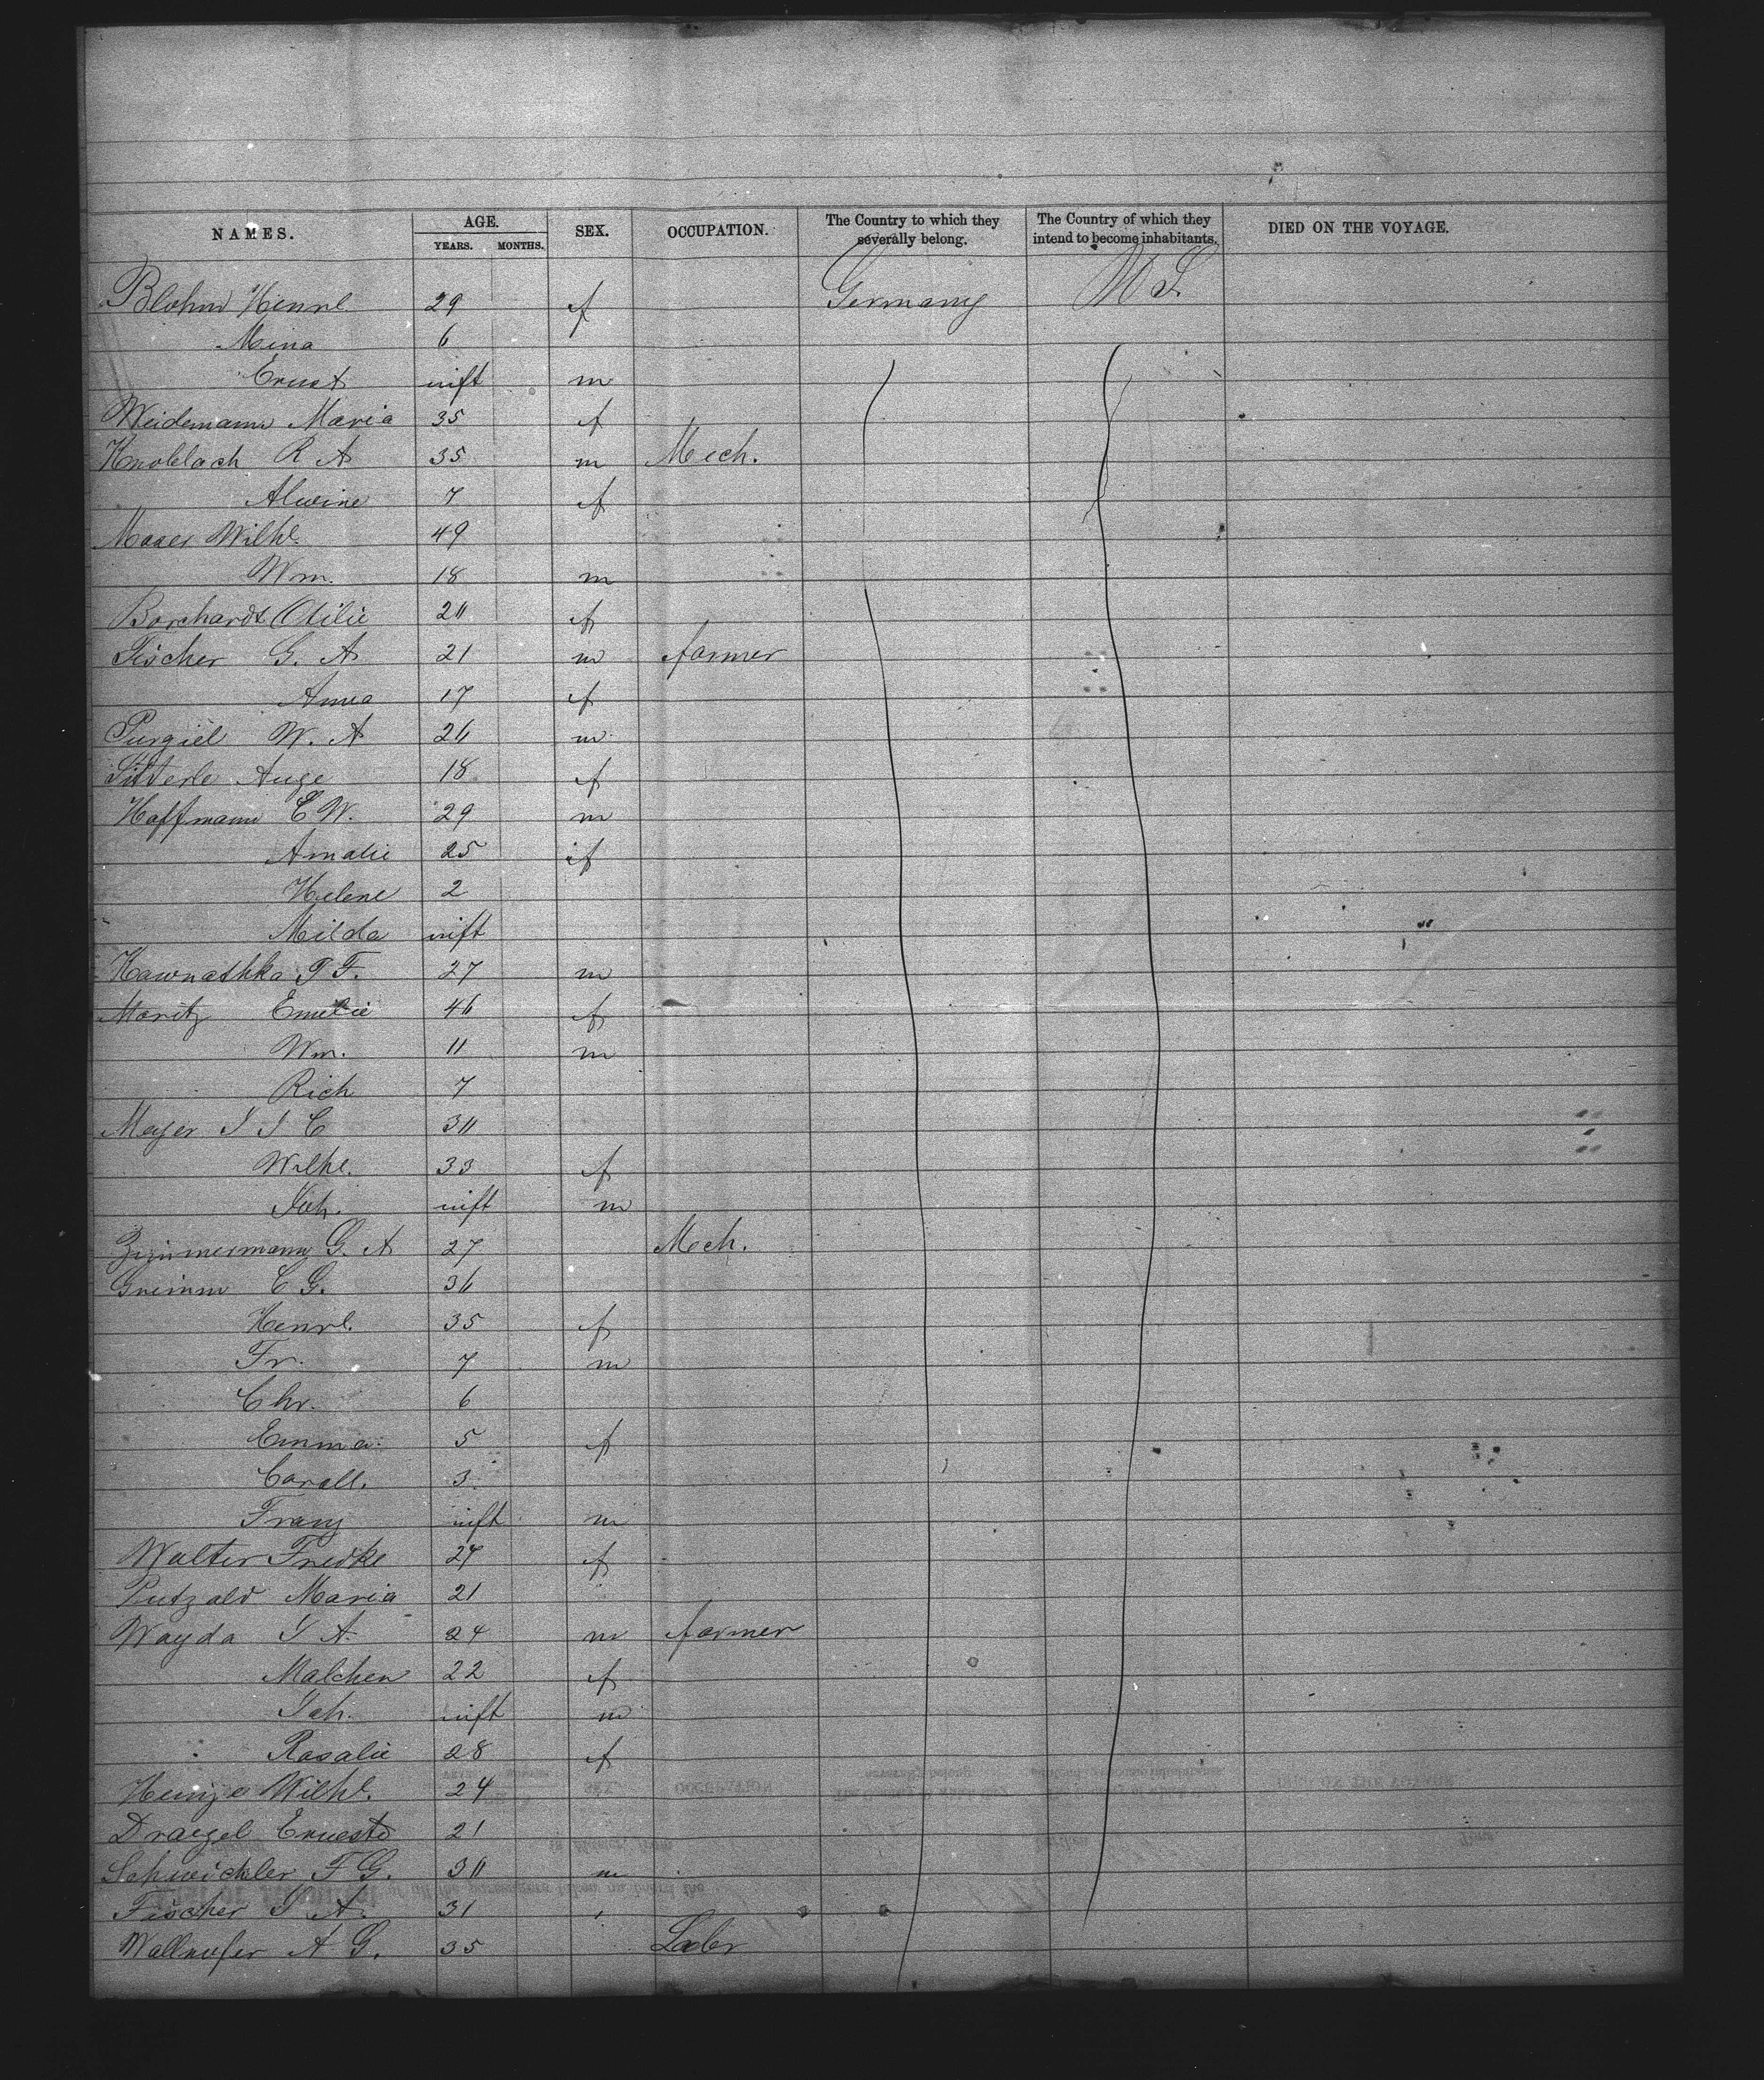 NAMES. AGE. YEARS. MONTHS. SEX. OCCUPATION. The Country to which they severally belong. The Country of which they intend to become inhabitants. DIED ON THE VOYAGE.
Blohm Henrl. 29 f Germany U S.
Mina 6
Ernst inft m
Weidemann Maria 35 f
Knoblach R A 35 m Mech.
Alwine 7 f
Moser Wilhl. 49
Wm. 18 m
Borchardt Otilie 20 f
Fischer G. A 21 m farmer
Anna 17 f
Purgiel W. A 26 m
Sitterle Auge 18 f
Hoffmann E W. 29 m
Amalie 25 f
Helene 2
Milda inft
Kawnathka P F. 27 m
Moritz Emilie 46 f
Wm. 11 m
Rich 7
Meyer J J C 30
Wilhl. 33 f
Joh. inft m
Zimmermann G. A 27 Mech.
Grimm C G. 36
Henrl. 35 f
Fr. 7 m
Chr. 6
Emma 5 f
Caroll. 3
Franz inft m
Walter Fredke 27 f
Putzald Maria 21
Wayda J A. 24 m farmer
Malchen 22 f
Joh. inft m
Rosalie 28 f
Heinze Wilhl. 24
Draegel Ernest 21
Schwickler F G. 30 m
Fischer J A. 31
Wallnofer A G. 35 Labr